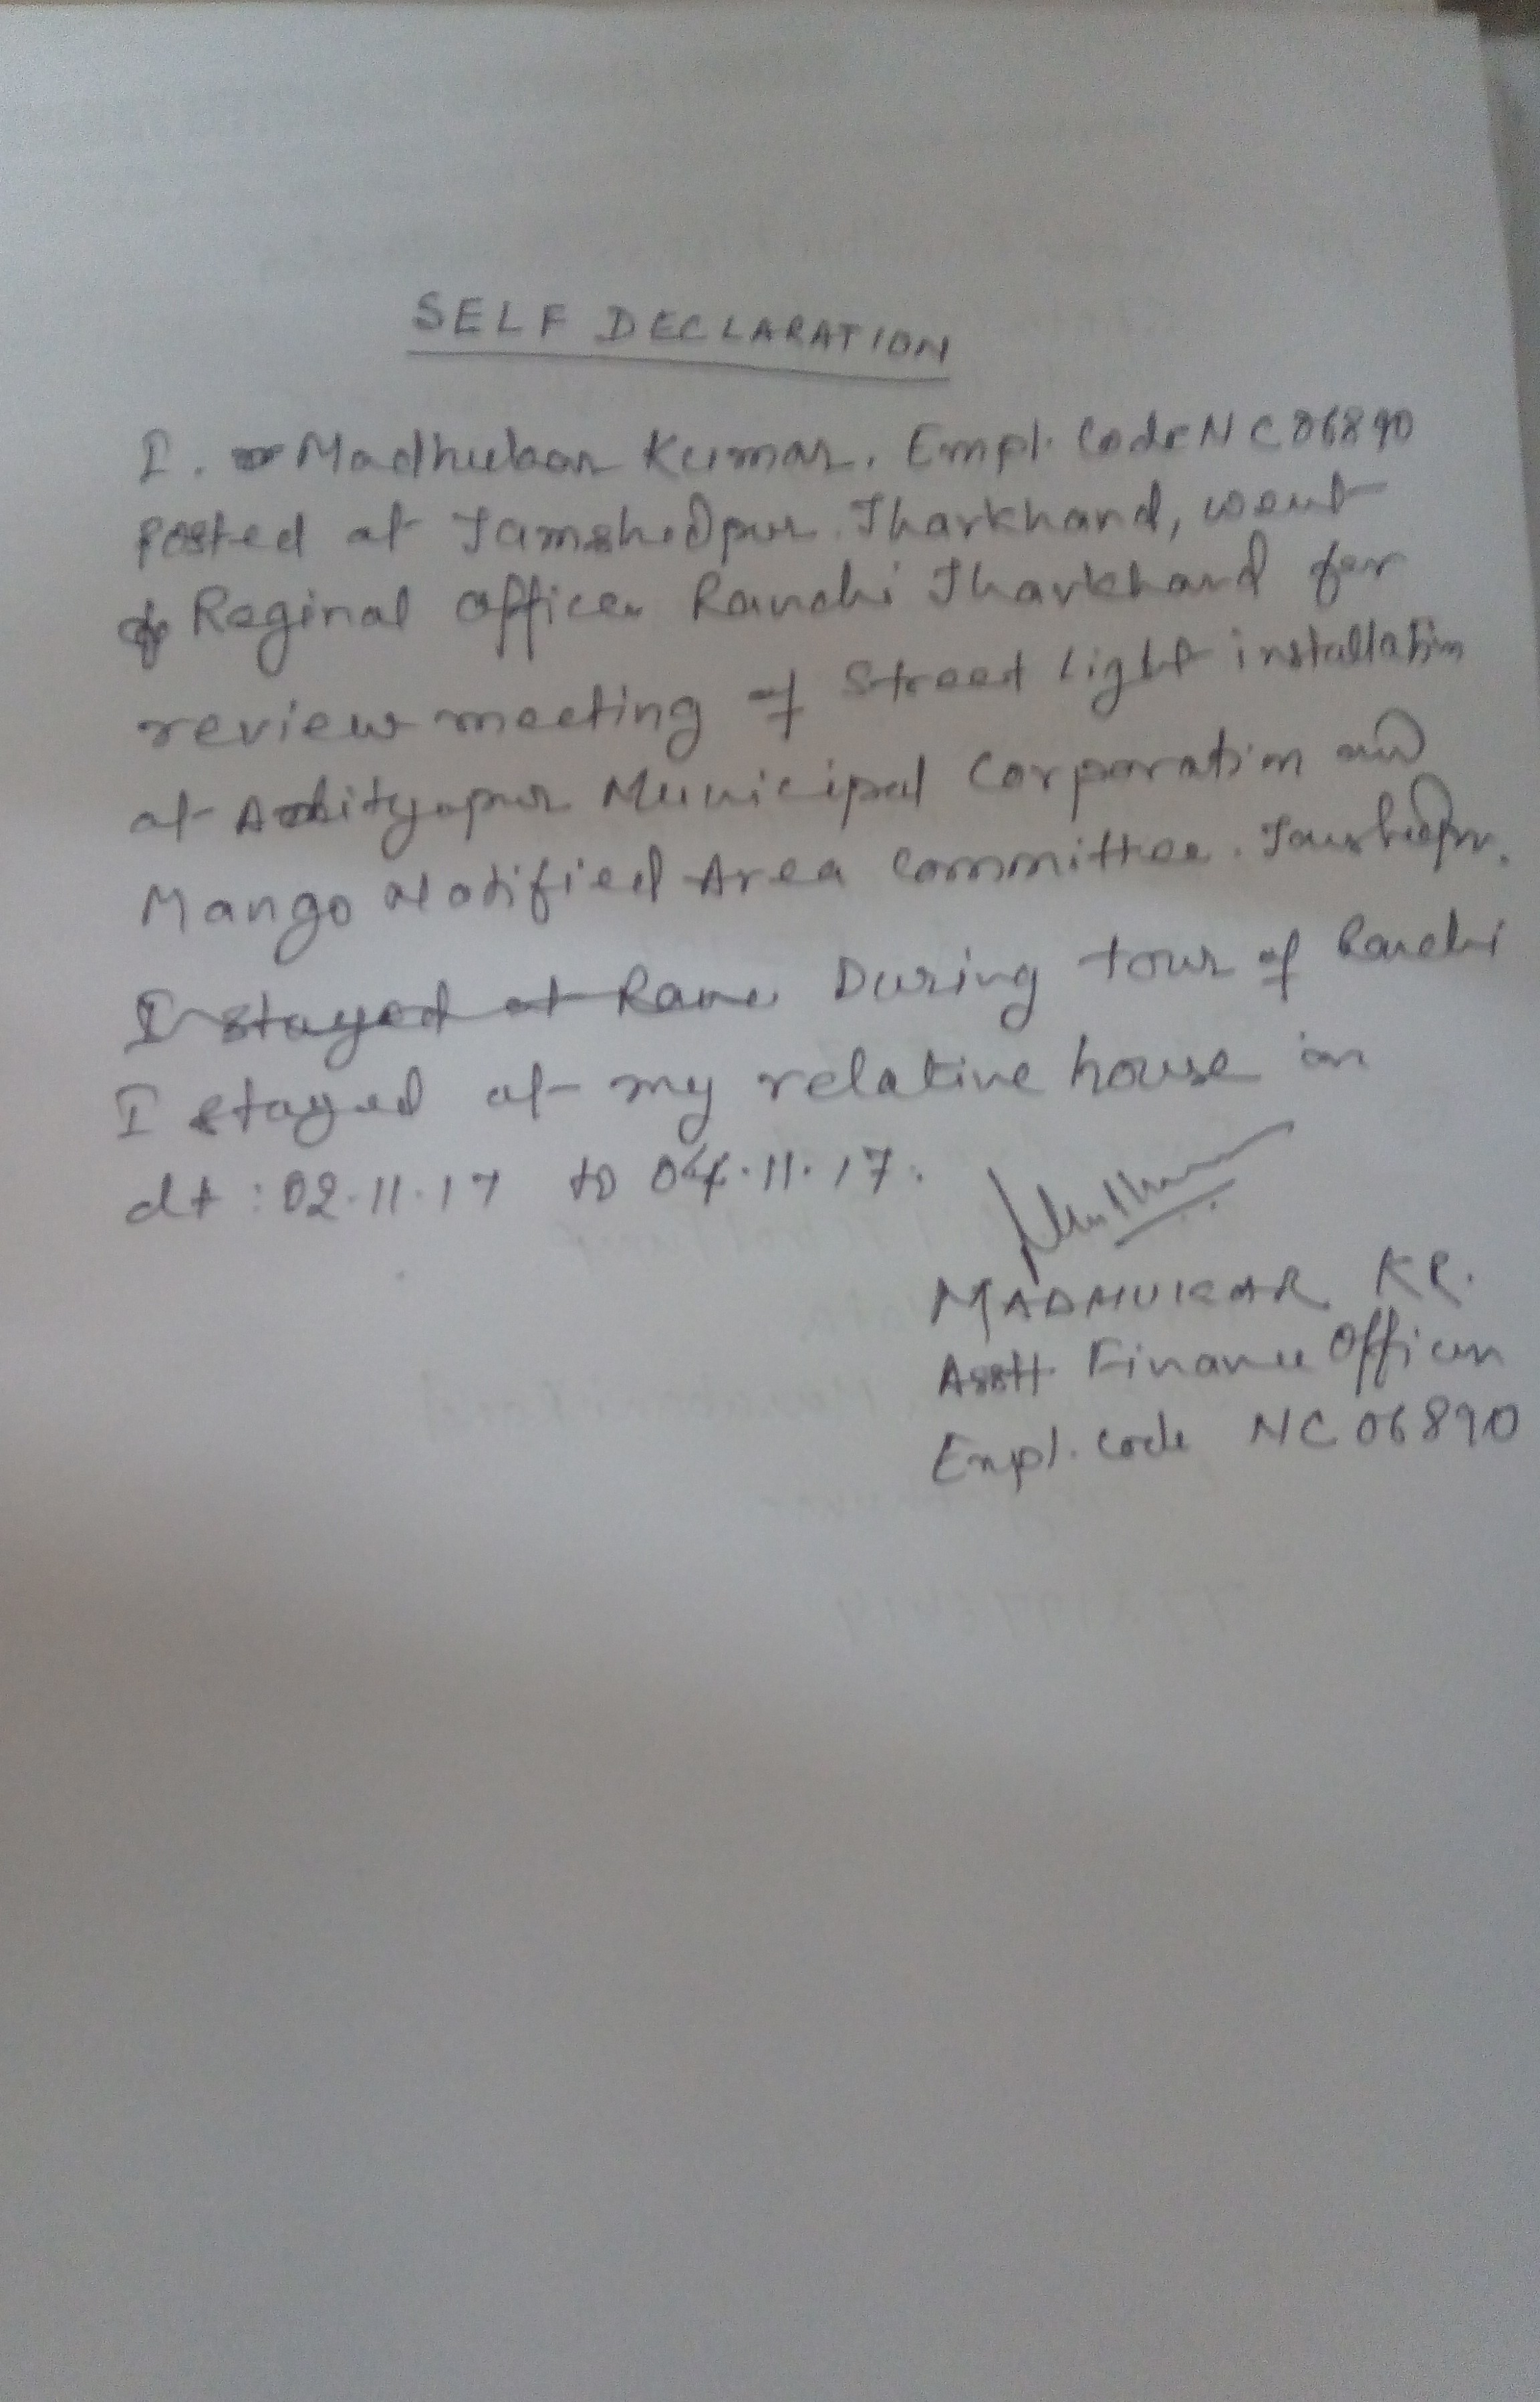 SELF DECLARATION
I. Madhukar Kumar, Empl. Code NC06890
posted at Jamshedpur Jharkhand, went
Reginal Office Ranchi Jharkhand for
review meeting of Street Light installation
at Adityapur Municipal Corporation and
Mango Notified Area Committee. Jamshedpur.
I stayed at During tour of Ranchi
I stayed at my relative house on
dt : 02.11.17 to 04.11.17.
MADHUKAR KR.
Asstt Finance Officer
Empl. Code NC 06890